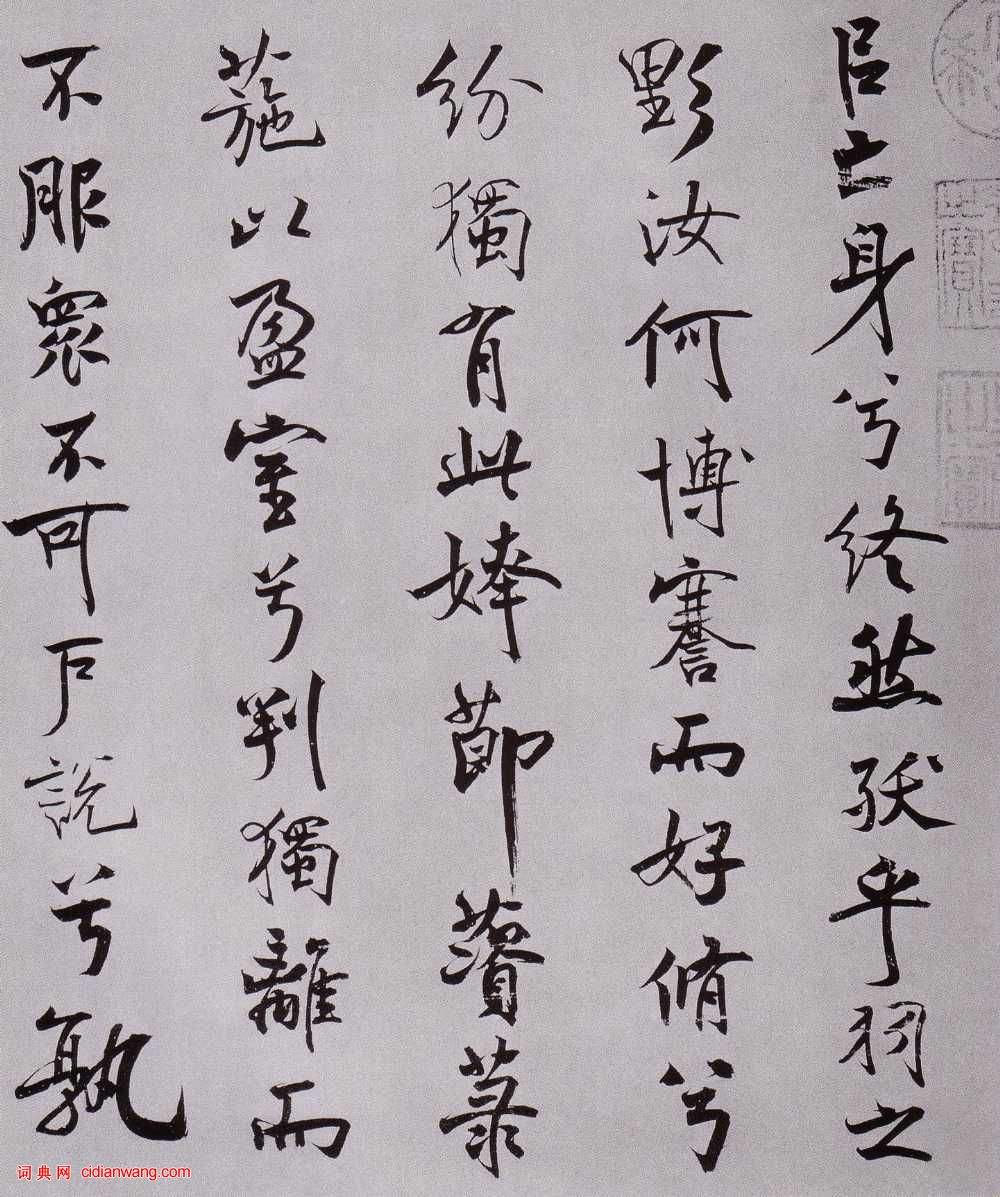 㠯亡身兮終然殀乎羽之
野汝何博謇而好脩兮
紛獨有此姱節薋菉
葹以盈室兮判獨離而
不服眾不可戶說兮孰
词典网 cidianwang.com